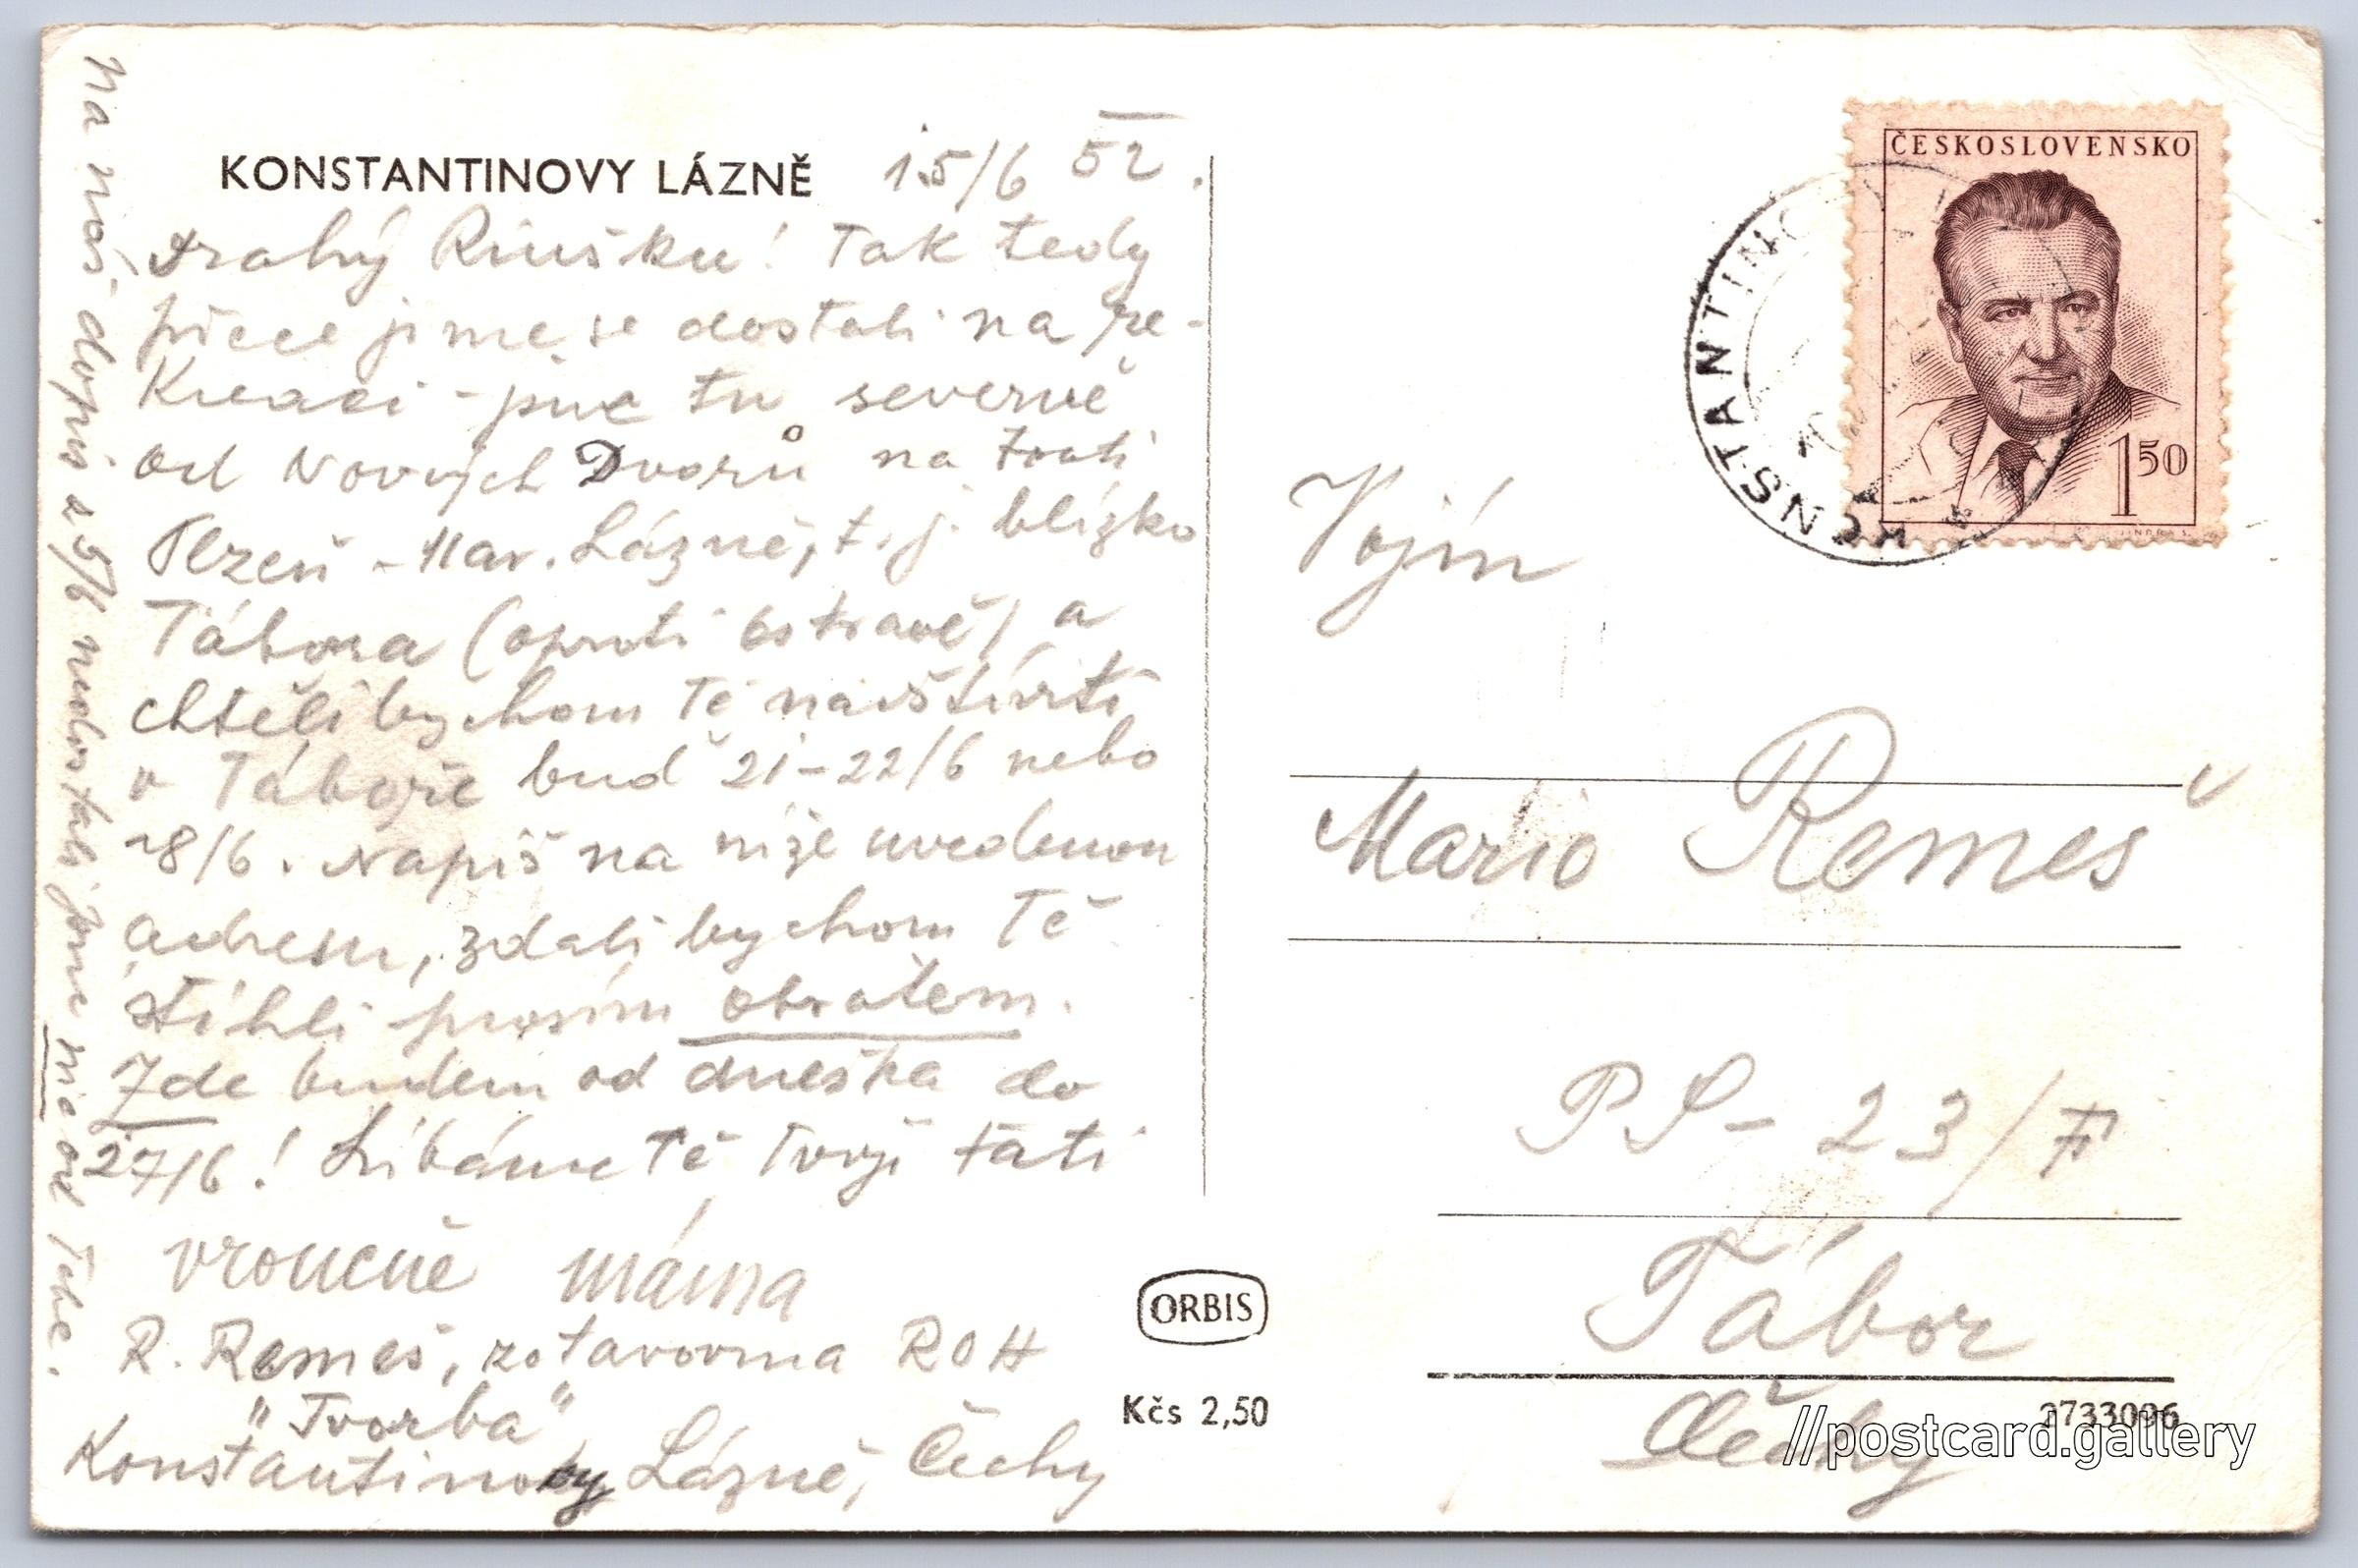 KONSTANTINOVY LÁZNĚ 15/6 52.
Drahý Riušku! Tak tedy
přece jsme se dostali na re-
kreaci - jsme tu severně
od Nových Dvorů na trati
Plzeň - Mar. Lázně, t. j. blízko
Tábora (oproti Ostravě) a
chtěli bychom Tě navštíviti
v Táboře buď 21-22/6 nebo
28/6. Napiš na níže uvedenou
adresu, zdali bychom Tě
stihli prosím obratem.
Zde budem od dneška do
27/6! Líbáme Tě Tvoji táti
vroucně máma
R. Remeš, zotavovna ROH
"Tvorba"
Konstantinovy Lázně, Čechy
Na náš dopis z 5/6 nedostali jsme nic od Tebe.
ČESKOSLOVENSKO
1 50
JINDRA S.
KONSTANTINOVY
Vojín
Mario Remeš
PS - 23/F
Tábor
Čechy
ORBIS
Kčs 2,50
2733096
//postcard.gallery